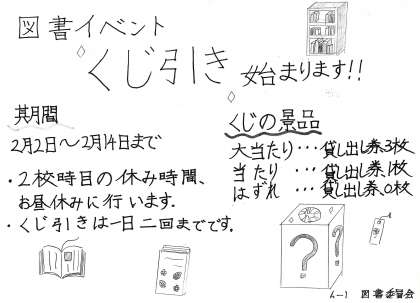 図書イベント
くじ引き始まります!!
其期間
2月2日〜2月14日まで
・2校時目の休み時間、
お昼休みに行います。
・くじ引きは一日二回までです。
くじの景品
大当たり・・・貸し出し券、3枚
当たり・・・貸し出し券、1枚
はずれ・・・貸し出し券、0枚
?
?
6-1 図書委員会